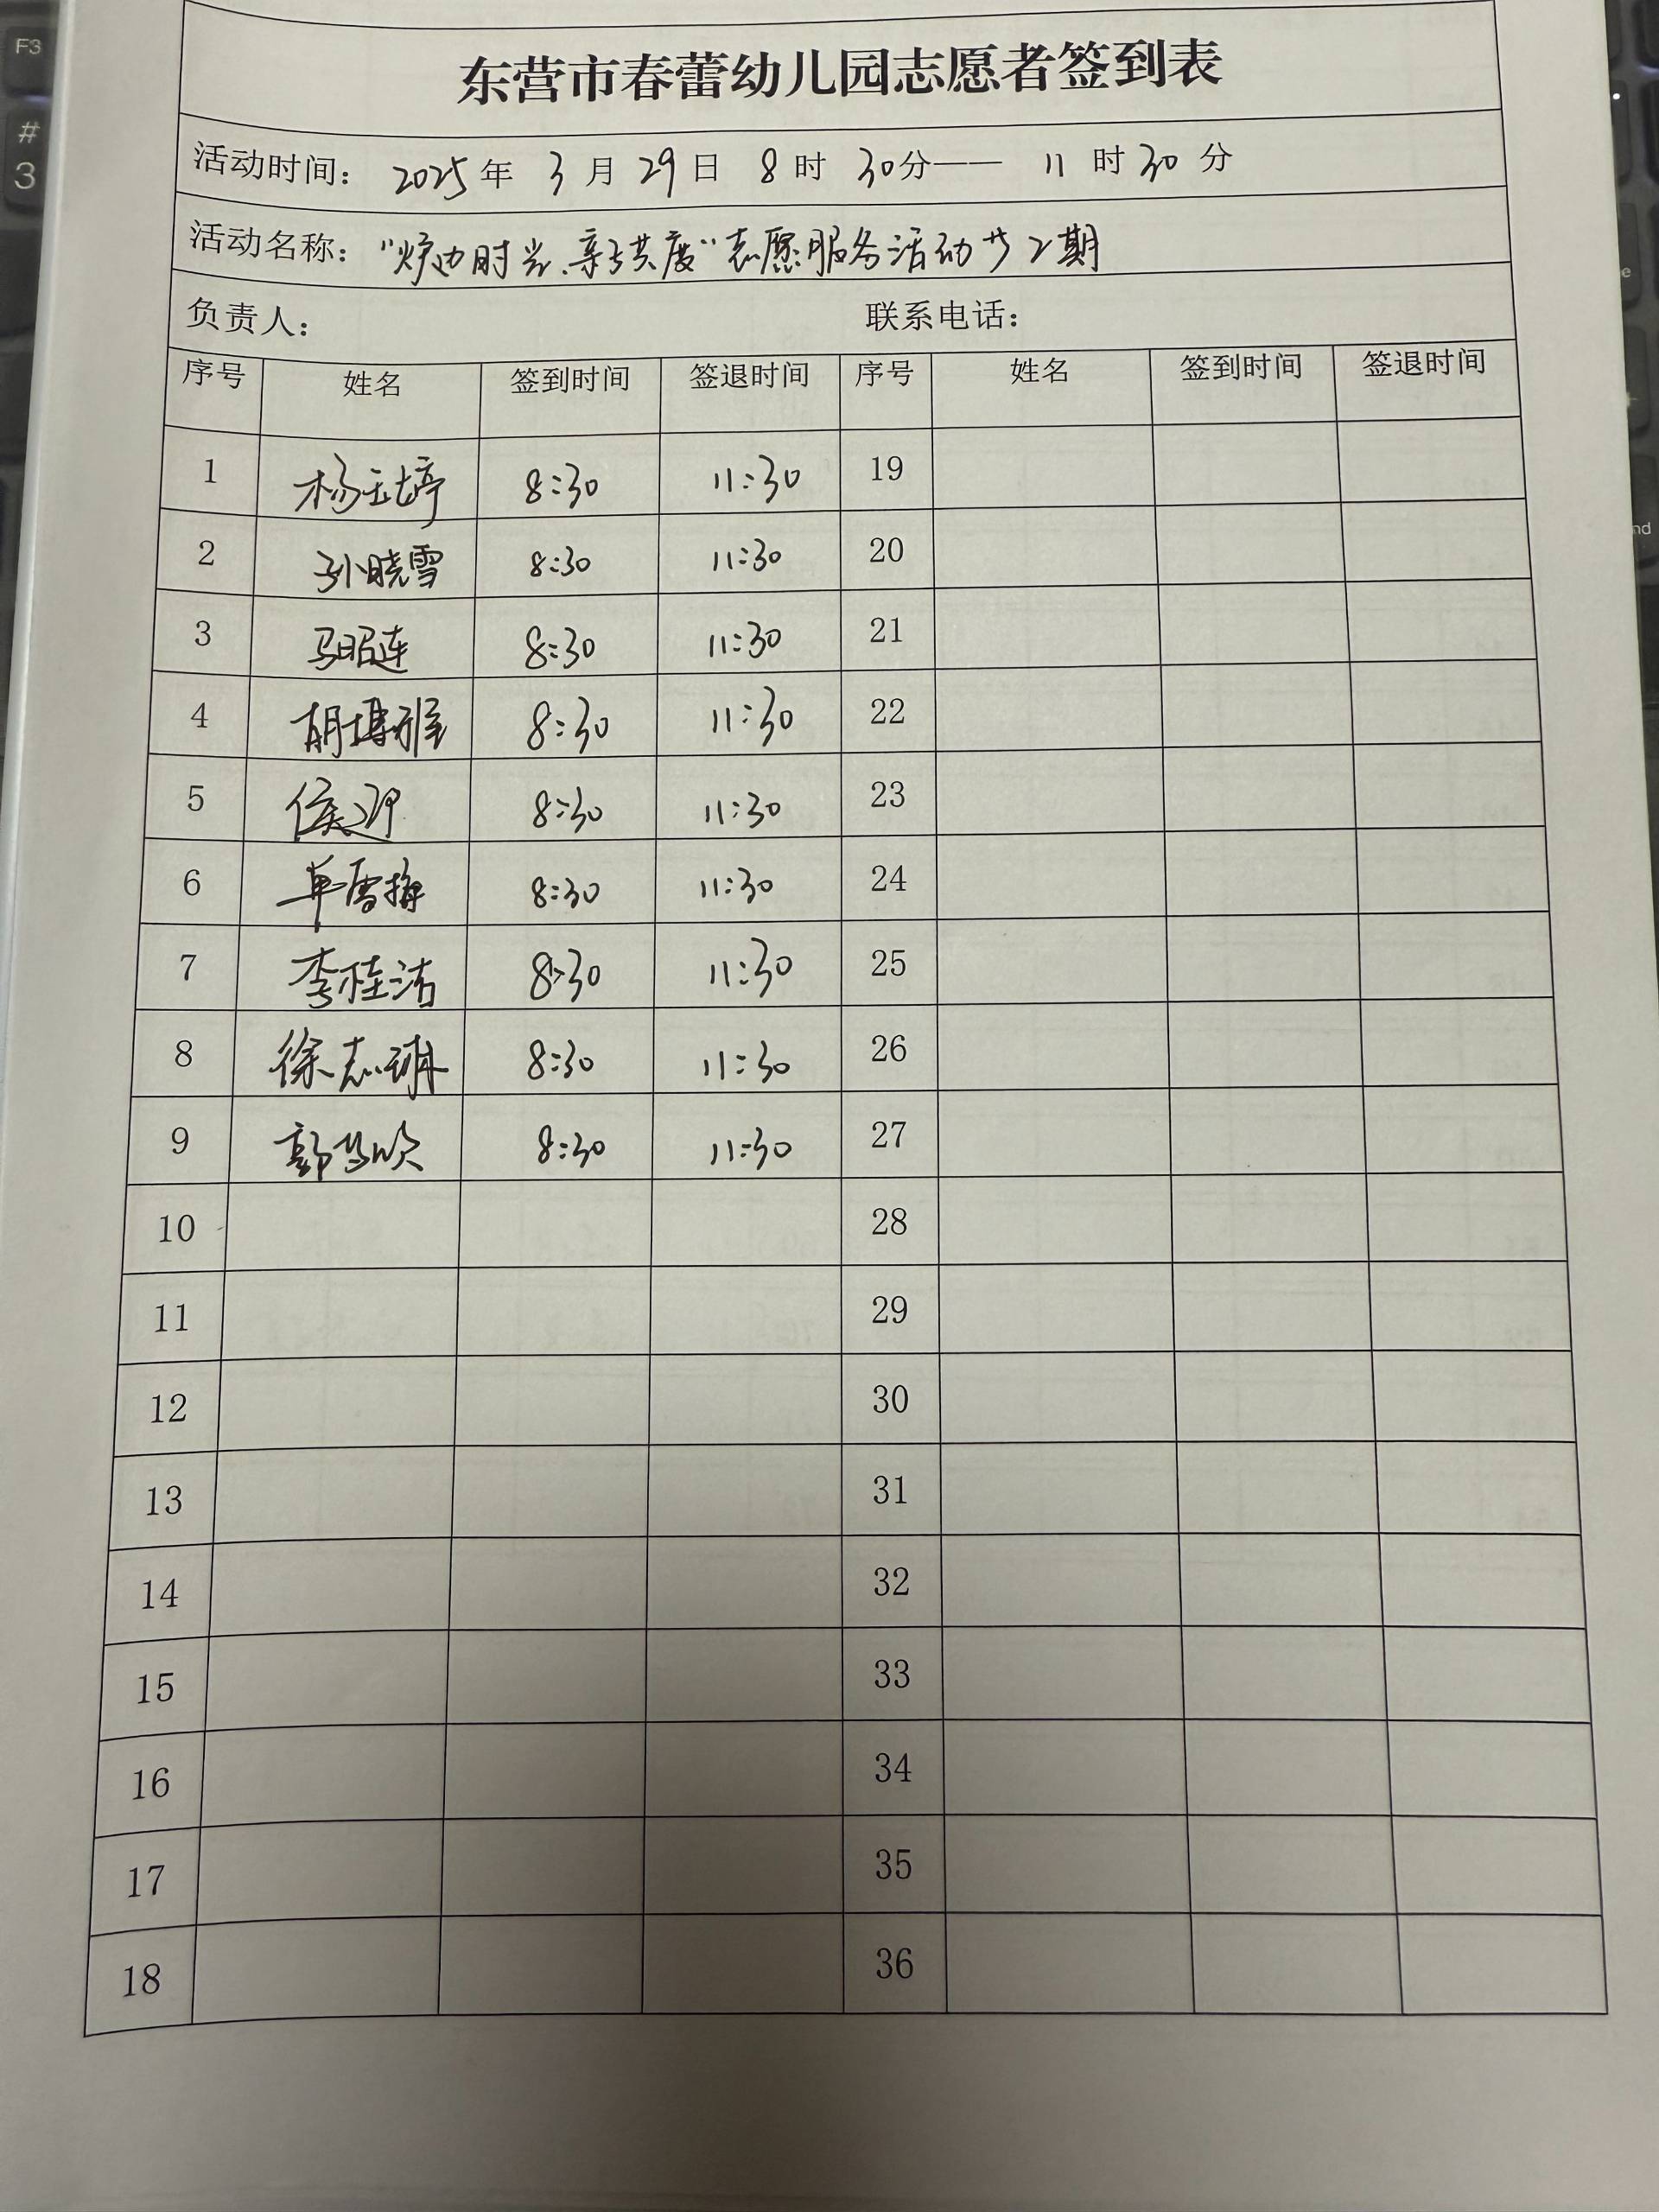 F3
#
3
东营市春蕾幼儿园志愿者签到表
活动时间: 2025年 3月29日 8时 30分—— 11时30分
活动名称: "炉边时光、亲子共度"志愿服务活动 2期
负责人: 联系电话:
序号 姓名 签到时间 签退时间 序号 姓名 签到时间 签退时间
1 杨玉婷 8:30 11:30 19
2 孙晓雪 8:30 11:30 20
3 马昭连 8:30 11:30 21
4 胡博雅 8:30 11:30 22
5 侯 8:30 11:30 23
6 单雪梅 8:30 11:30 24
7 李桂洁 8:30 11:30 25
8 徐志琳 8:30 11:30 26
9 郭梦欣 8:30 11:30 27
10 28
11 29
12 30
13 31
14 32
15 33
16 34
17 35
18 36